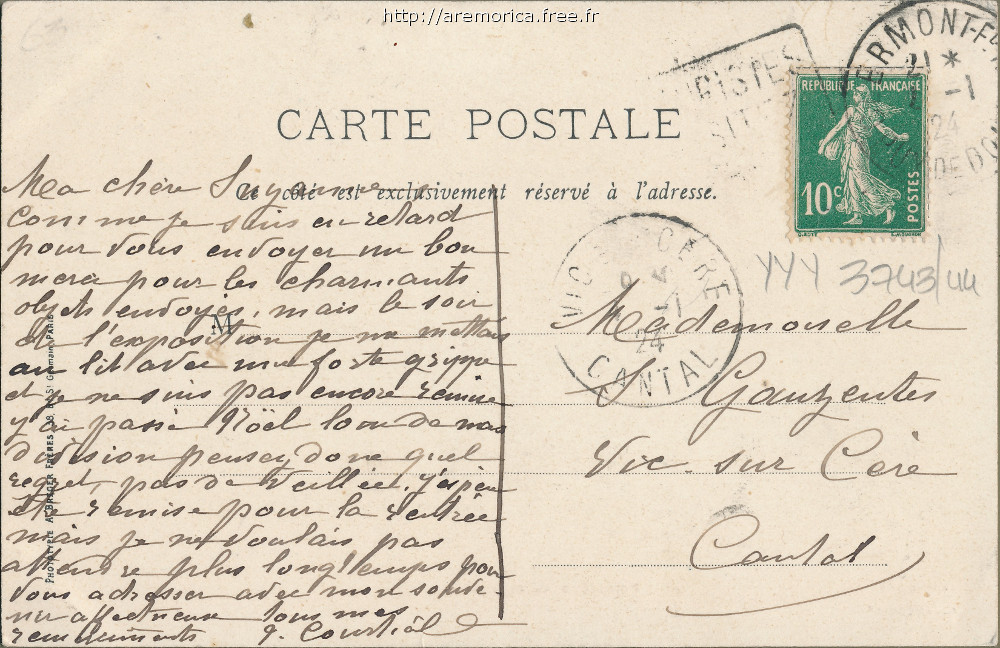 http://aremorica.free.fr
CLERMONT-Fd
21*
-1
24
PUY DE DOME
RÉPUBLIQUE FRANÇAISE
10c
POSTES
CARTE POSTALE
Ce côté est exclusivement réservé à l'adresse.
VIC CERE
-1
24
CANTAL
YYY 3743/44
M
Mademoiselle
S Gauzentes
Vic-sur Cère
Cantal
Ma chère Suzanne
Comme je suis en retard
pour vous envoyer un bon
merci pour les charmants
objets envoyés, mais le soir
de l'exposition je me mettais
au lit avec une forte grippe
et je ne suis pas encore remise
j'ai passé Noël loin de mas
division pensez donc quel
regret, pas de veillée. J'espère
être remise pour la rentrée
mais je ne voulais pas
attendre plus longtemps pour
vous adresser avec mon souve-
nir affectueux tous mes
remerciements J. Courtial
PHOTOTYPIE A. BREGER FRÈRES Bd St Germain, PARIS